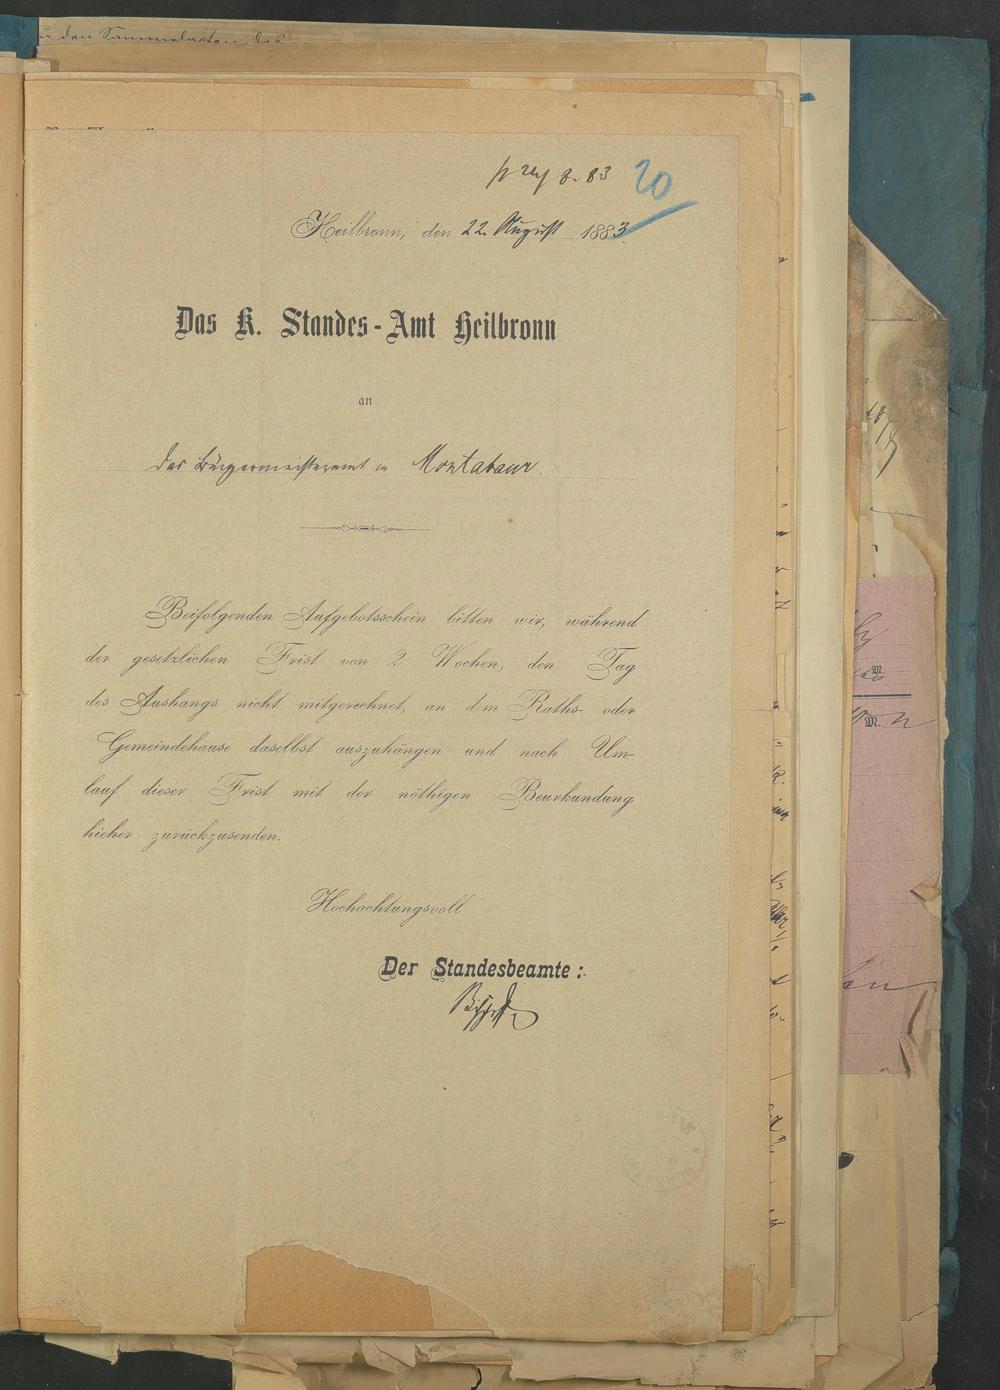 zu den Sammelakten des
pr 24/8. 83
20
Heilbronn, den 22. August 1883.
Das K. Standes-Amt Heilbronn
an
das Bürgermeisteramt in Montabaur.
Beifolgenden Aufgebotsschein bitten wir, während
der gesetzlichen Frist von 2 Wochen, den Tag
des Aushangs nicht mitgerechnet, an dem Raths- oder
Gemeindehause daselbst auszuhängen und nach Um-
lauf dieser Frist mit der nöthigen Beurkundung
hieher zurückzusenden.
Hochachtungsvoll
Der Standesbeamte: